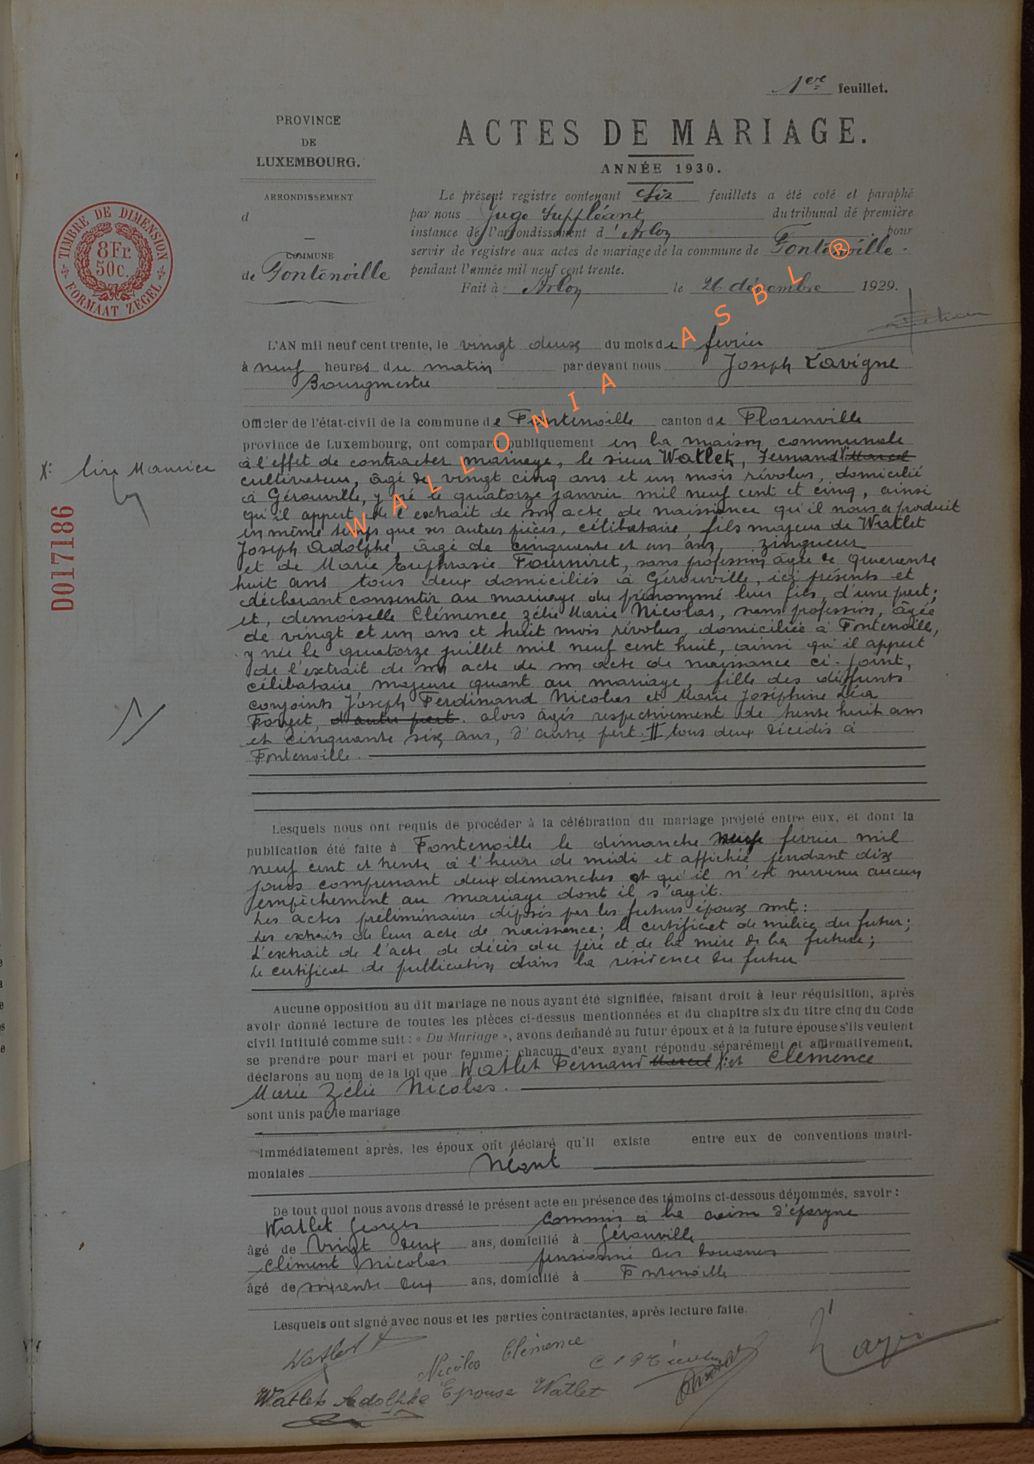 1ere feuillet.
PROVINCE
DE
LUXEMBOURG.
ARRONDISSEMENT
d
COMMUNE
de Fontenoille
TIMBRE DE DIMENSION
8 Fr.
50c.
FORMAAT ZEGEL
ACTES DE MARIAGE.
ANNÉE 1930.
Le présent registre contenant six feuillets a été coté et paraphé
par nous Juge Suppléant du tribunal de première
instance de l'arrondissement d'Arlon pour
servir de registre aux actes de mariage de la commune de Fontenoille.
pendant l'année mil neuf cent trente.
Fait à Arlon le 26 décembre 1929.
L'AN mil neuf cent trente, le vingt deux du mois de février
à neuf heures du matin par devant nous Joseph Lavigne
Bourgmestre
Officier de l'état-civil de la commune de Fontenoille canton de Florenville
province de Luxembourg, ont comparu publiquement en la maison communale
à l'effet de contracter mariage, le sieur Watlet, Fernand Marcel
X: lire Maurice
cultivateur, âgé de vingt cinq ans et un mois révolus, domicilié
à Gérouville, y né le quatorze janvier mil neuf cent et cinq, ainsi
qu'il appert de l'extrait de son acte de naissance qu'il nous a produit
en même temps que ses autres pièces, célibataire, fils majeur de Watlet
Joseph Adolphe, âgé de cinquante et un ans, zingueur
et de Marie Euphrasie Fourniret, sans profession, âgée de quarante
huit ans tous deux domiciliés à Gérouville, ici présents et
déclarant consentir au mariage du prénommé leur fils, d'une part;
et, demoiselle Clémence Zélie Marie Nicolas, sans profession, âgée
de vingt et un ans et huit mois révolus, domiciliée à Fontenoille,
y née le quatorze juillet mil neuf cent huit, ainsi qu'il appert
de l'extrait de son acte de son acte de naissance ci-joint,
célibataire majeure quant au mariage, fille des défunts
conjoints Joseph Ferdinand Nicolas et Marie Joséphine Léa
Forget, d'autre part. alors âgés respectivement de trente huit ans
et cinquante six ans, d'autre part. tous deux décédés à
Fontenoille.
D017186
Lesquels nous ont requis de procéder à la célébration du mariage projeté entre eux, et dont la
publication été faite à Fontenoille le dimanche neuf février mil
neuf cent et trente à l'heure de midi et affichée pendant dix
jours comprenant deux dimanches et qu'il n'est survenu aucun
empêchement au mariage dont il s'agit.
Les actes préliminaires déposés par les futurs époux sont:
Les extraits de leur acte de naissance; le certificat de milice du futur;
L'extrait de l'acte de décès du père et de la mère de la future;
le certificat de publication dans la résidence du futur
Aucune opposition au dit mariage ne nous ayant été signifiée, faisant droit à leur réquisition, après
avoir donné lecture de toutes les pièces ci-dessus mentionnées et du chapitre six du titre cinq du Code
civil intitulé comme suit: « Du Mariage », avons demandé au futur époux et à la future épouse s'ils veulent
se prendre pour mari et pour femme; chacun d'eux ayant répondu séparément et affirmativement,
déclarons au nom de la loi que Watlet Fernand Marcel X et Clémence
Marie Zélie Nicolas.
sont unis par le mariage
Immédiatement après, les époux ont déclaré qu'il existe entre eux de conventions matri-
moniales Néant
De tout quoi nous avons dressé le présent acte en présence des témoins ci-dessous dénommés, savoir:
Watlet Georges commis à la caisse d'épargne
âgé de vingt deux ans, domicilié à Gérouville
Clément Nicolas pensionné des douanes
âgé de soixante deux ans, domicilié à Fontenoille
Lesquels ont signé avec nous et les parties contractantes, après lecture faite.
Watlet
Nicolas Clémence
Watlet Adolphe Epouse Watlet
WALLONIA ASBL ®